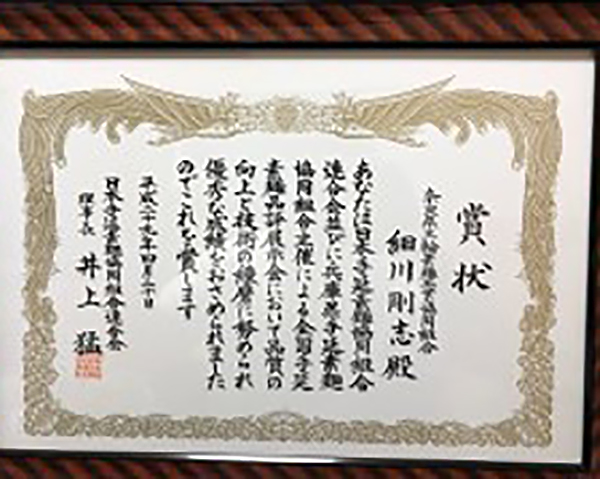 賞状
奈良県三輪素麺工業協同組合
細川剛志殿
あなたは日本手延素麺協同組合
連合会並びに兵庫県手延素麺
協同組合主催による全国手延
素麺品評展示会において品質の
向上と技術の錬磨に努められ
優秀な成績をおさめられました
のでこれを賞します
平成二十九年四月二十日
日本手延素麺協同組合連合会
理事長 井上 猛